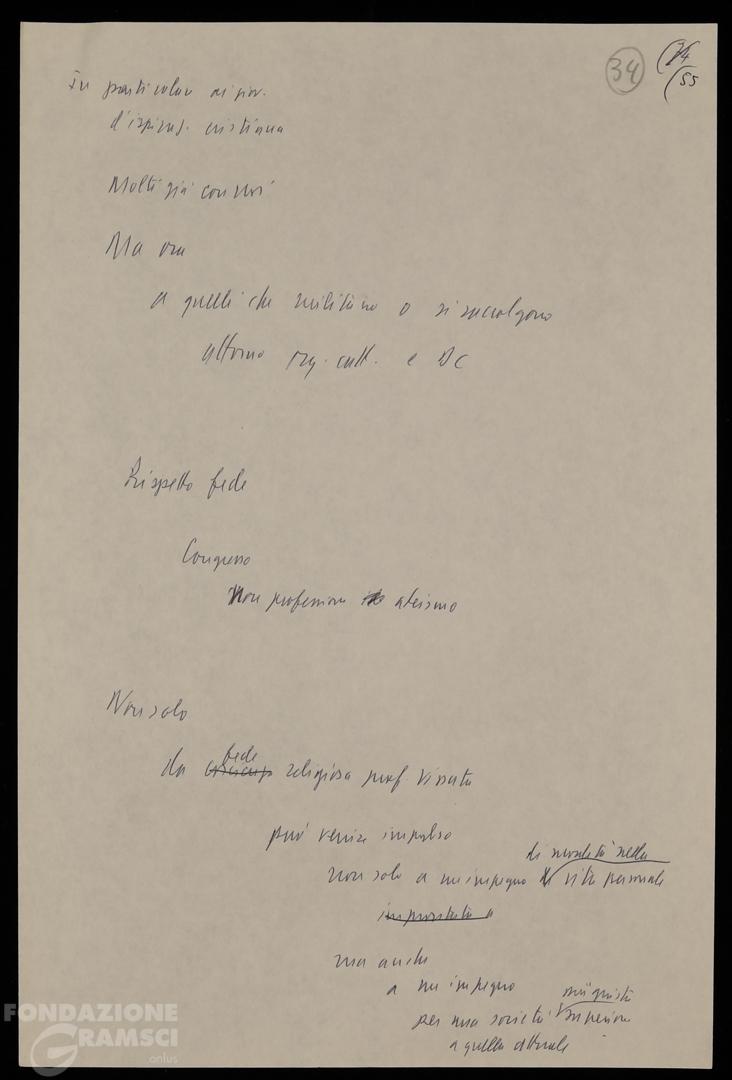 34
34
/55
In particolare ai giov.
d'ispiraz. cristiana
Molti già con noi
Ma ora
a quelli che militano o si raccolgono
attorno org. catt. e DC
Rispetto fede
Congresso
Non professione ateismo
Non solo
da fede religiosa prof. vissuta
può venire impulso
di moralità nella
non solo a un impegno vita personale
improntata a
ma anche
a un impegno
più giusta
per una società superiore
a quella attuale
FONDAZIONE
GRAMSCI
onlus